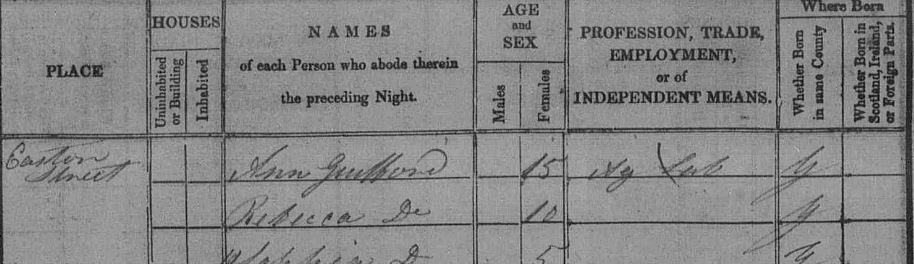 PLACE
HOUSES
Uninhabited or Building
Inhabited
NAMES
of each Person who abode therein
the preceding Night.
AGE
and
SEX
Males
Females
PROFESSION, TRADE,
EMPLOYMENT,
or of
INDEPENDENT MEANS.
Where Born
Whether Born in same County
Whether Born in Scotland, Ireland, or Foreign Parts.
Easton Street Ann 15 Ag Lab y
Rebecca Do 10 y
5 y